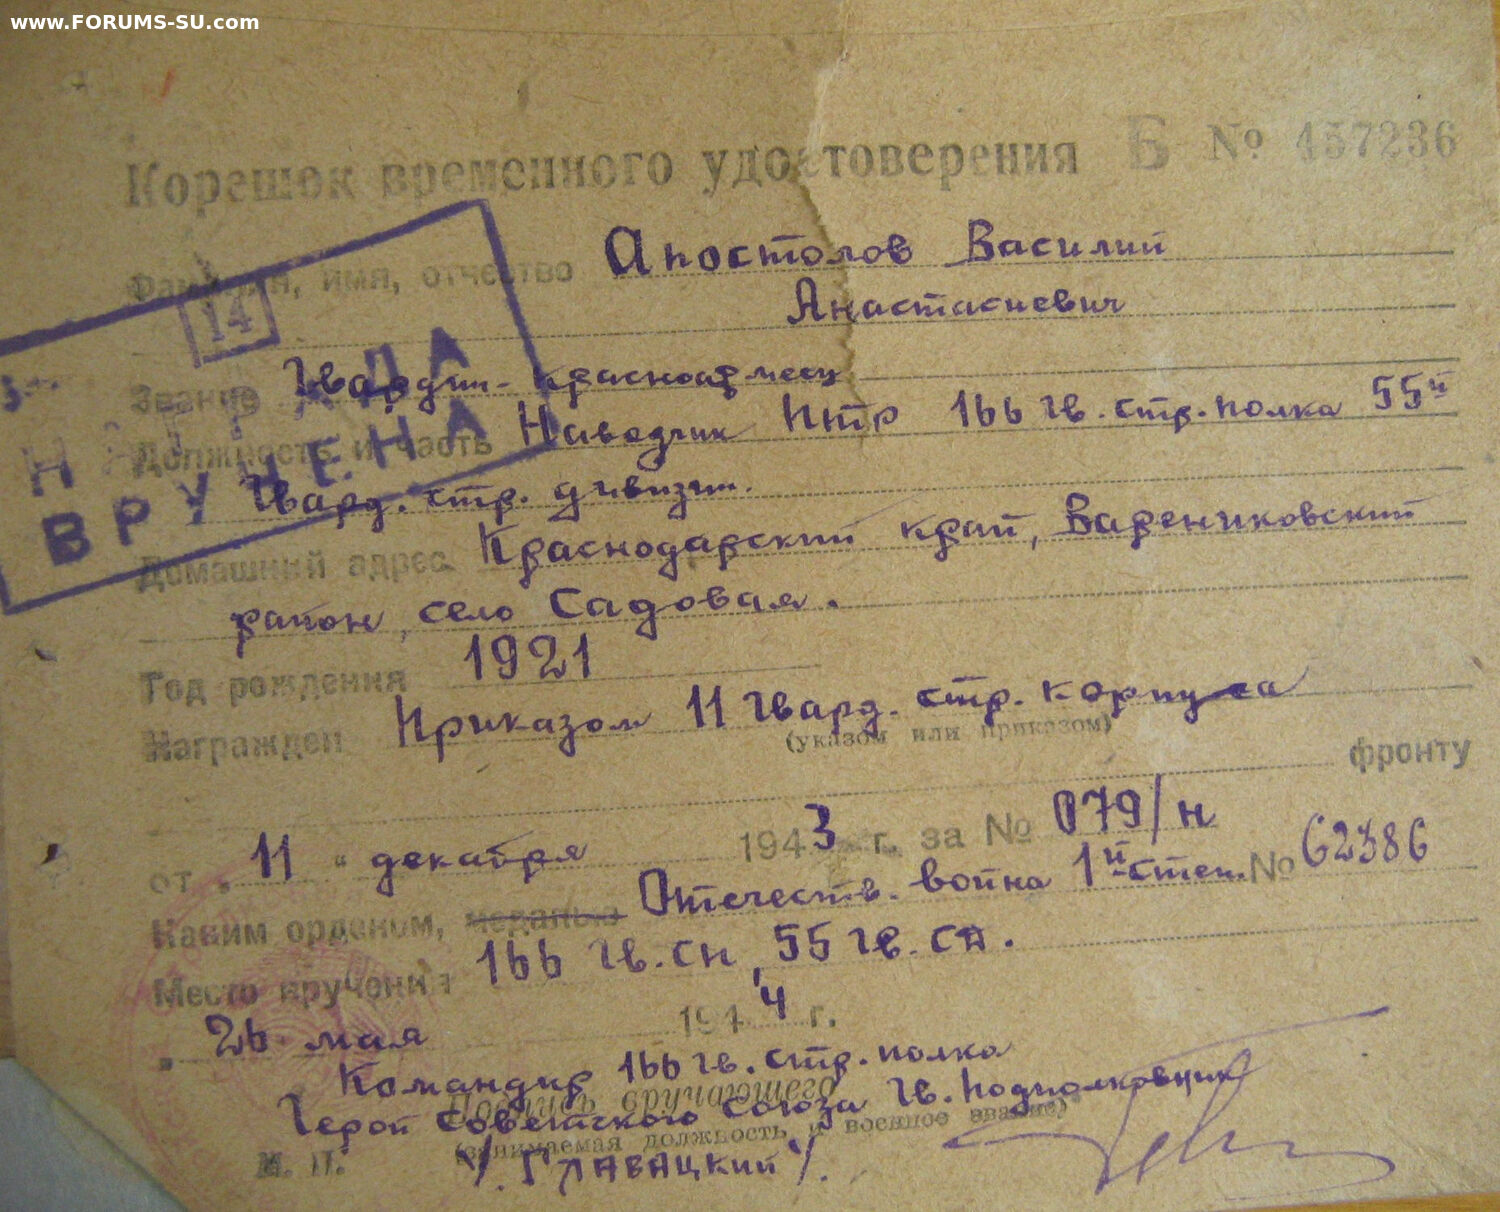 www.FORUMS-SU.com
Корешок временного удостоверения Б № 457236
Фамилия, имя, отчество Апостолов Василий
Анастасиевич
14
Звание Гвардии-красноармеец
НАГРАДА
ВРУЧЕНА
Должность и часть Наводчик ПТР 166 гв. стр. полка 55й
Гвард. стр. дивизии.
Домашний адрес Краснодарский край, Варениковский
район, село Садовая.
Год рождения 1921
Награжден Приказом 11 Гвард. стр. корпуса
(указом или приказом)
фронту
от „ 11 " декабря 1943 г. за № 079/н
Каким орденом, медалью Отечеств. война 1й степ. № 62386
Место вручения 166 гв. сп, 55 гв. сд.
„ 26 мая 1944 г.
Командир 166 гв. стр. полка
Подпись вручающего
Герой Советского Союза Гв. подполковник
(занимаемая должность и военное звание)
М. П. /Главацкий/.